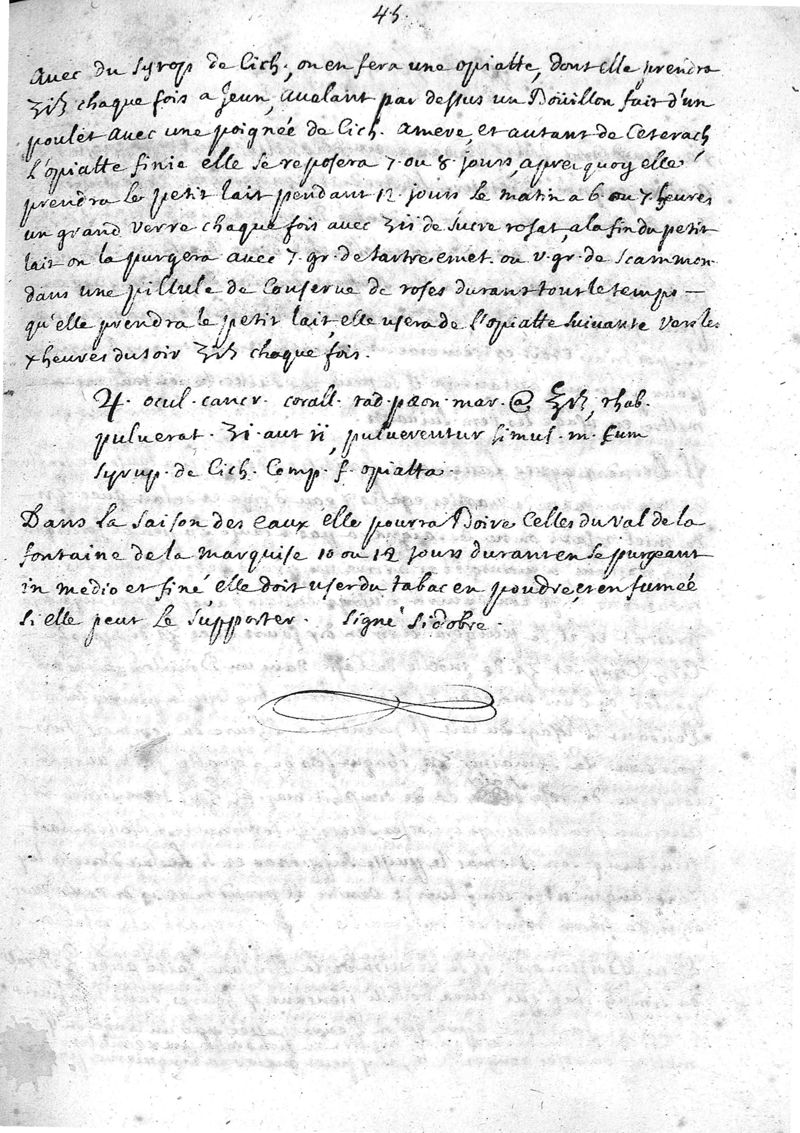 45.
Avec du Syrop de Cich., on en fera une opiatte, dont elle prendra
ʒiß chaque fois a Jeun, avalant par dessus un Boüillon fait d'un
poulet avec une poignée de Cich. amere, et autant de Ceterach,
L'opiatte finie elle se reposera 7. ou 8. jours, apres quoy elle
prendra le petit lait pendant 12. jours le matin a 6. ou 7. heures
un grand verre chaque fois avec ʒii de Sucre rosat, a la fin du petit
lait on la purgera avec 7. gr. de tartre emet. ou v. gr. de Scammon.
dans une pillule de Conserve de roses durant tout le temps —
qu'elle prendra le petit lait, elle usera de l'opiatte suivante vers les
x heures du soir ʒiß chaque fois.
♃. ocul. cancr. corall. rad. pæon. mar. @ ℥iß, rhab.
pulverat. ʒi aut ii, pulverentur simul. m. Cum
Syrup. de Cich. Comp. f. opiatta.
Dans la Saison des eaux elle pourra Boire Celles du Val de la
fontaine de la marquise 10 ou 12 jours durant en se purgeant
in medio et finé, elle doit user du tabac en poudre, et en fumée
si elle peut le Supporter. Signé Sidobre.